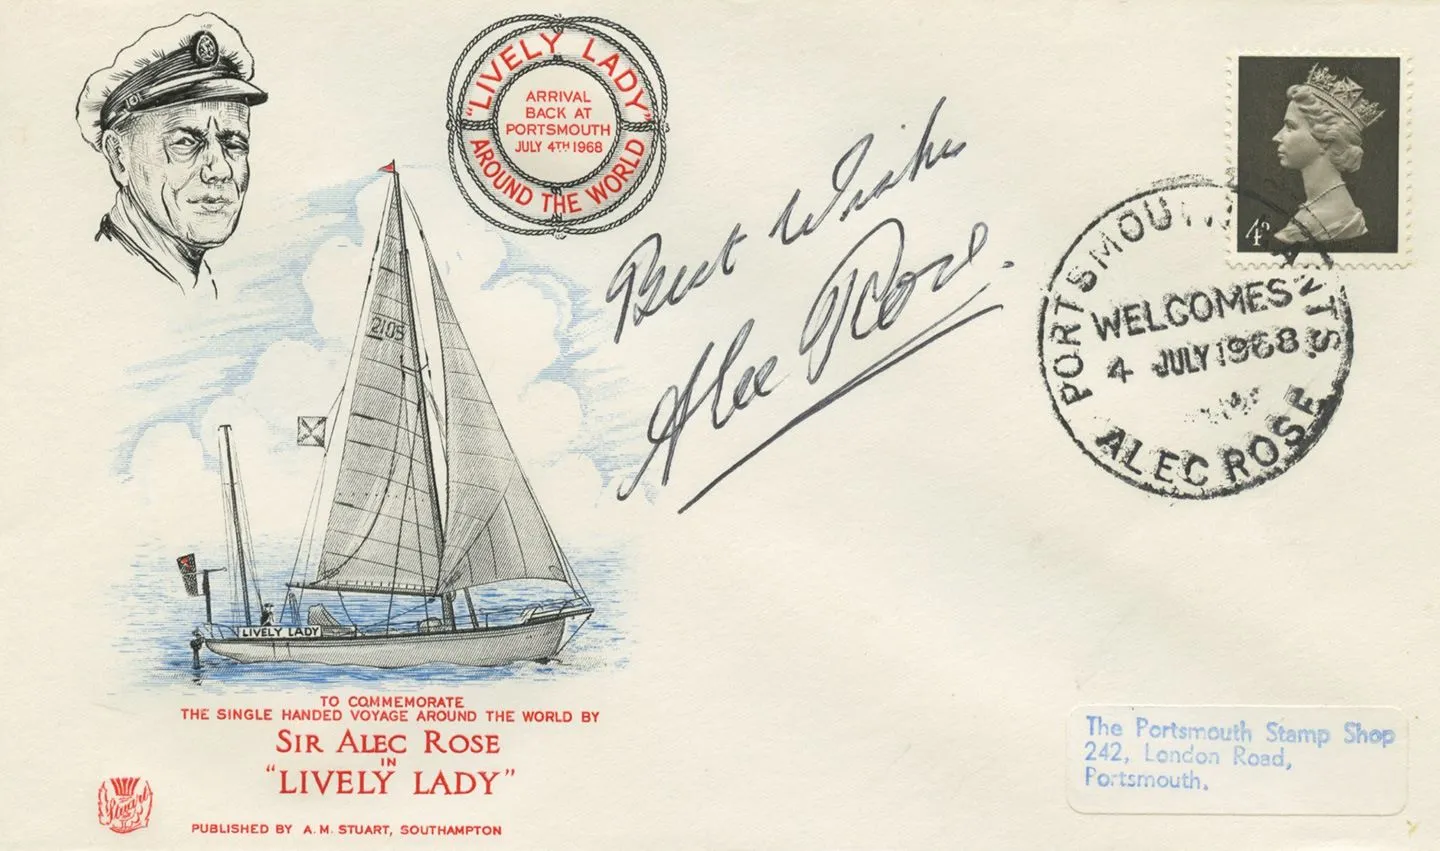 "LIVELY LADY"
ARRIVAL
BACK AT
PORTSMOUTH
JULY 4TH 1968
AROUND THE WORLD
Best Wishes
Alec Rose.
4D
PORTSMOUTH
WELCOMES
4 JULY 1968
ALEC ROSE
2105
LIVELY LADY
TO COMMEMORATE
THE SINGLE HANDED VOYAGE AROUND THE WORLD BY
SIR ALEC ROSE
IN
"LIVELY LADY"
Stuart
PUBLISHED BY A. M. STUART, SOUTHAMPTON
The Portsmouth Stamp Shop
242, London Road,
Portsmouth.